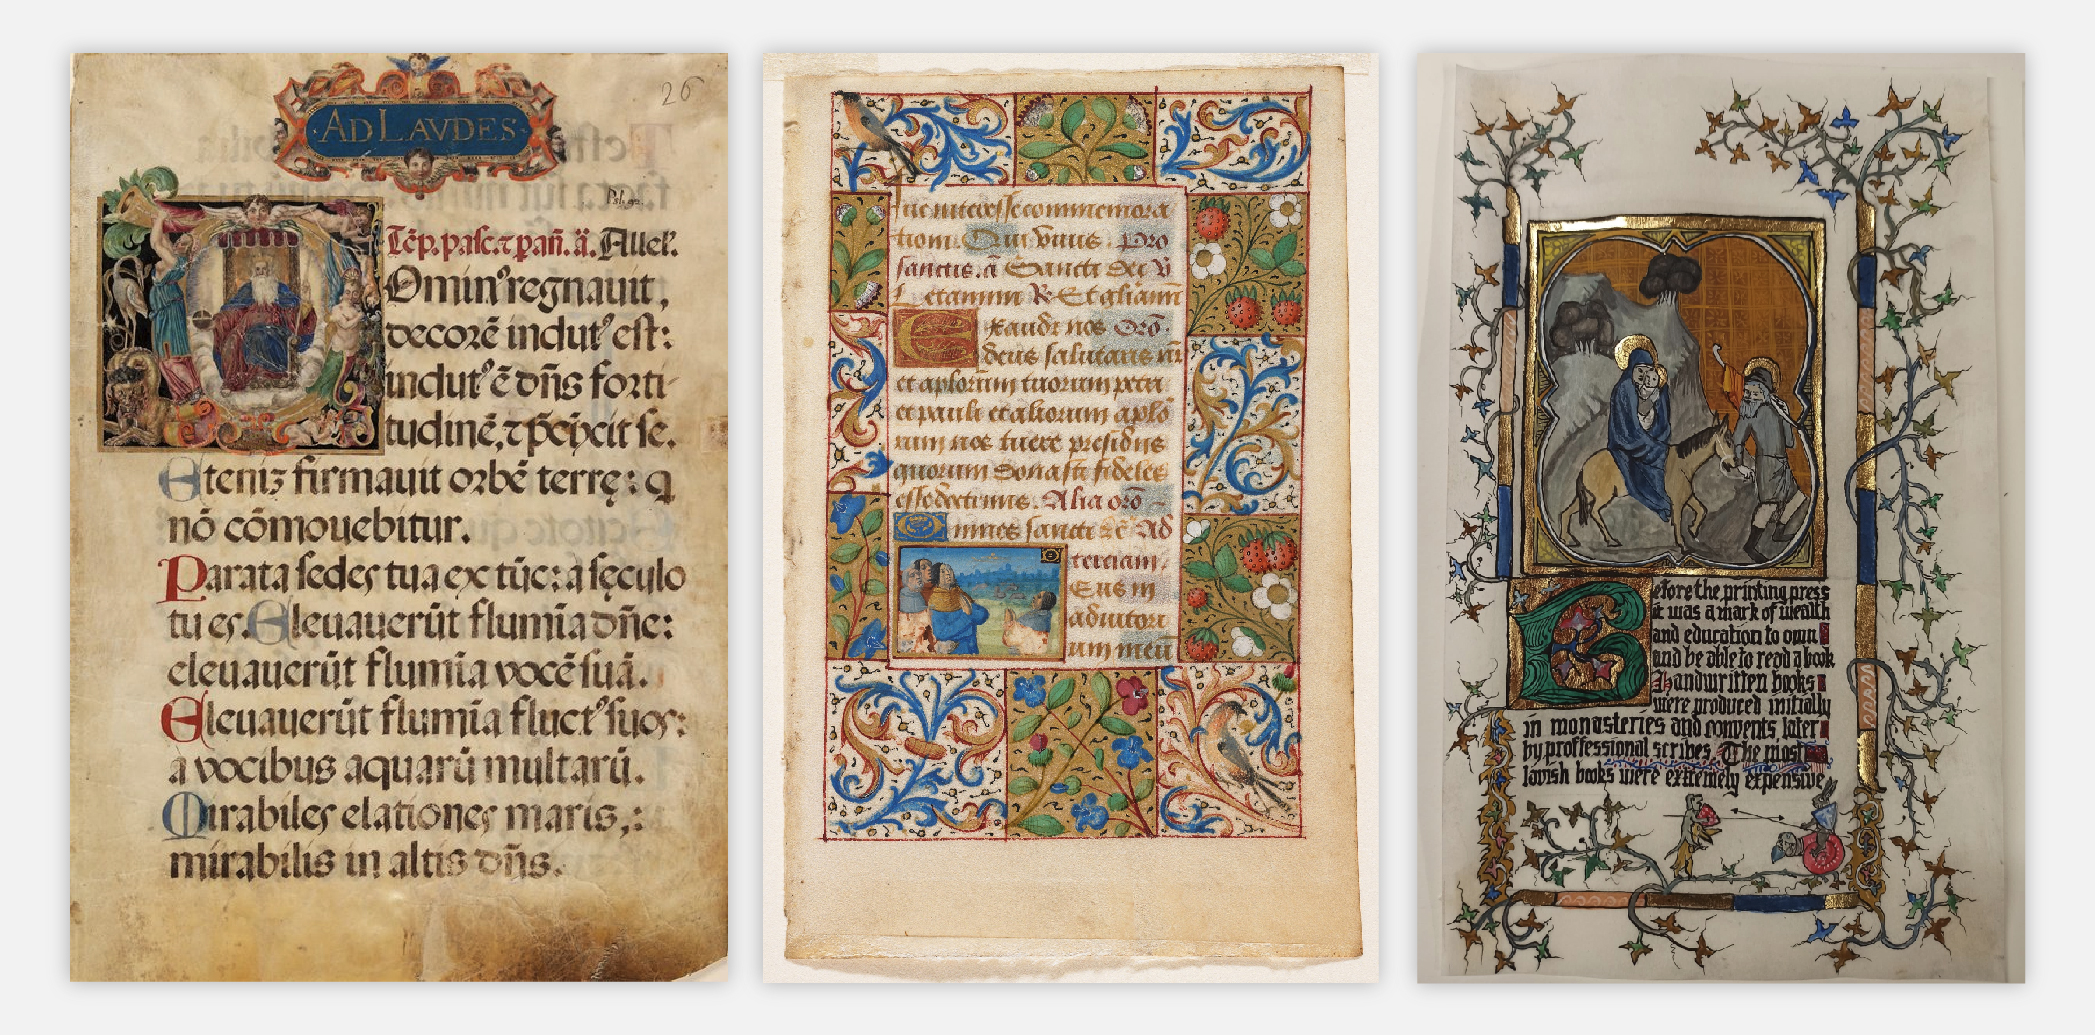 26
AD LAVDES
Ps. 92.
Tēp. pasc. ⁊ pan̄. ā. Allel'.
Omin⁹ regnauit,
decorē indut⁹ est:
indut⁹ ē dn̄s forti-
tudinē, ⁊ p̄cīxit se.
Eteniꝫ firmauit orbē terrę: q
nō cōmouebitur.
Parata sedes tua ex tūc: a sęculo
tu es. Eleuauerūt flumīa dn̄e:
eleuauerūt flumīa vocē suā.
Eleuauerūt flumīa fluct⁹ suos:
a vocibus aquarū multarū.
Mirabiles elationes maris,:
mirabilis in altis dn̄s.
commemora
tioni. Qui viuis. Pro
sanctis. ā Sancti dei v̄
Letamini ℞ Et gliami
Exaudi nos Orō.
deus salutaris nr̄
et aplorum tuorum petri
et pauli et aliorum aplo
rum nos tuere presidiis
quorum donasti fideles
esse doctrinis. Alia orō
Omnes sancti ⁊c̄ Ad
terciam.
Eus in
adiutori
um meū
Before the printing press
it was a mark of wealth
and education to own
and be able to read a book
Handwritten books
were produced initially
in monasteries and convents later
by proffessional scribes. The most
lavish books were extremely expensive